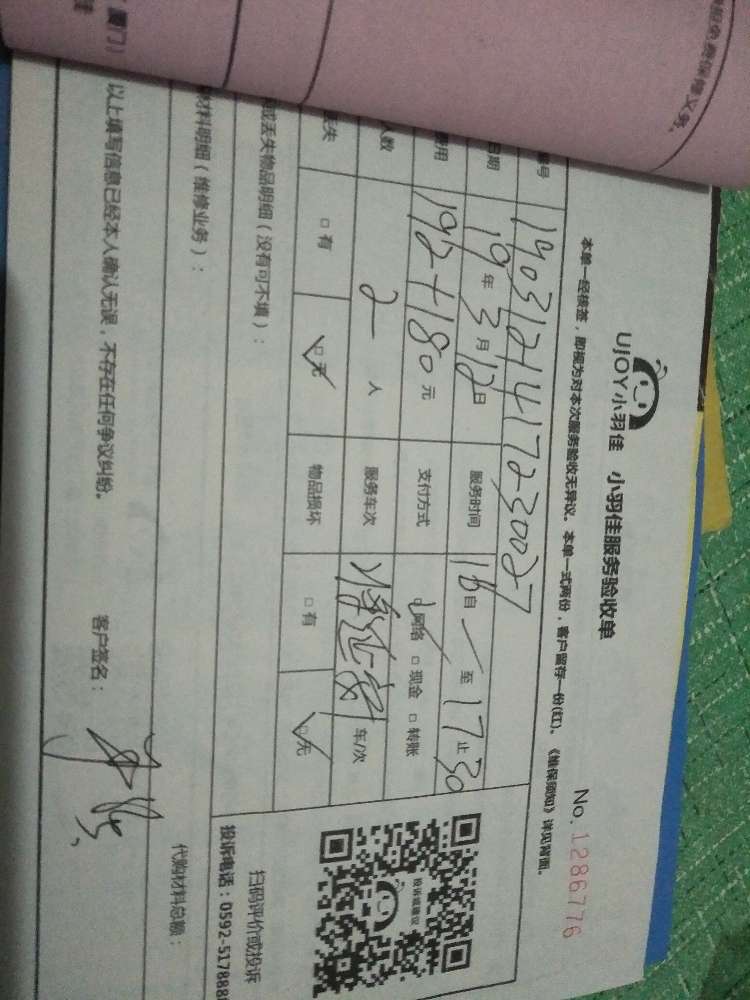 厦门）
服务免费保修义务。
UJOY小羽佳 小羽佳服务验收单
No. 1286776
本单一经核签，即视为对本次服务验收无异议。本单一式两份，客户留存一份(红)。《维保须知》详见背面。
编号 1403121417230027
日期 19年3月12日 服务时间 16自 至 17止30
费用 192+180元 支付方式 网络 □现金 □转账
人数 2人 服务车次 车/次
丢失 □有 □无 物品损坏 □有 □无
或丢失物品明细（没有可不填）：
材料明细（维修业务）：
代购材料总额：
以上填写信息已经本人确认无误，不存在任何争议纠纷。 客户签名：
投诉或建议
扫码评价或投诉
投诉电话：0592-5178888